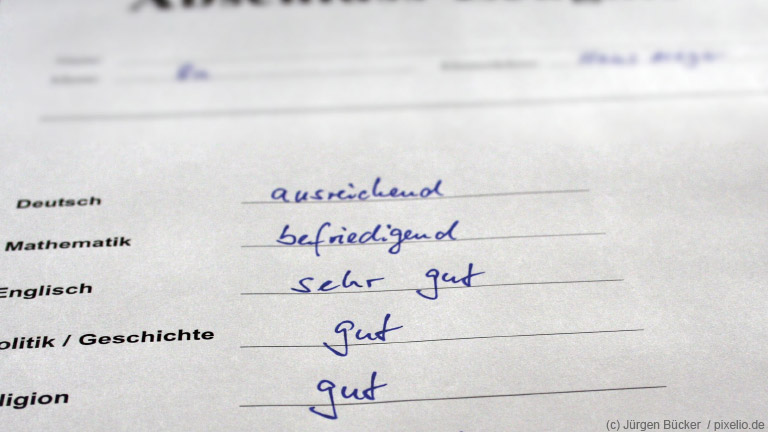 Deutsch ausreichend
Mathematik befriedigend
Englisch sehr gut
olitik / Geschichte gut
ligion gut
(c) Jürgen Bücker / pixelio.de